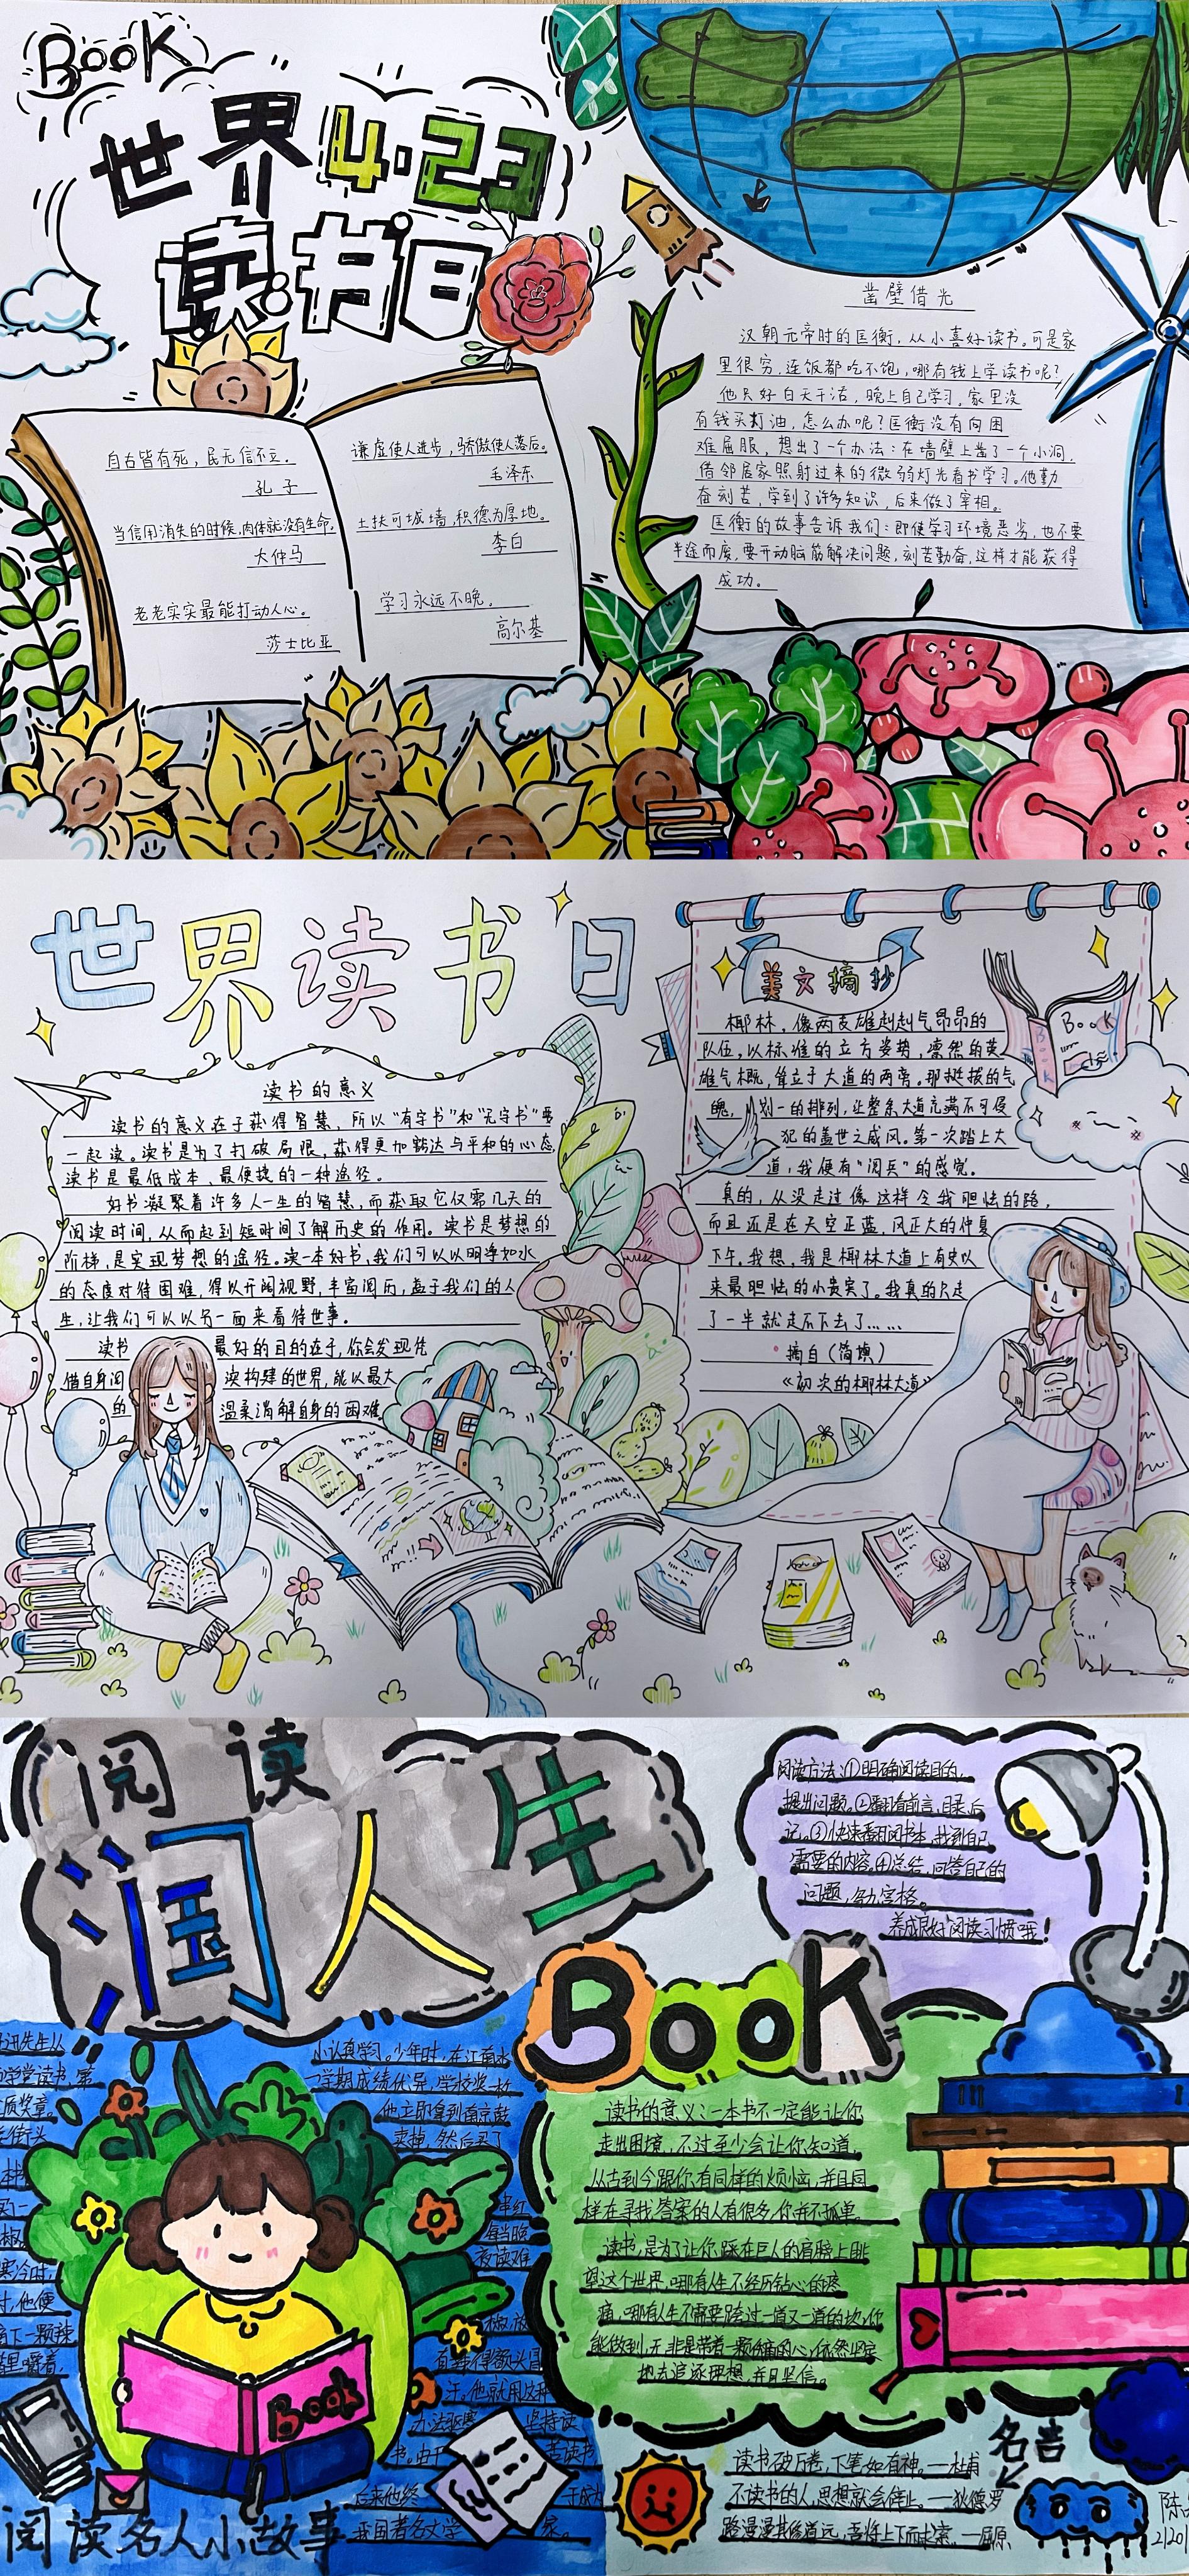 Book
世界4·23
读书日
自古皆有死，民无信不立。
孔子
当信用消失的时候，肉体就没有生命。
大仲马
老老实实最能打动人心。
莎士比亚
谦虚使人进步，骄傲使人落后。
毛泽东
土扶可城墙，积德为厚地。
李白
学习永远不晚。
高尔基
凿壁借光
汉朝元帝时的匡衡，从小喜好读书。可是家
里很穷，连饭都吃不饱，哪有钱上学读书呢？
他只好白天干活，晚上自己学习，家里没
有钱买灯油，怎么办呢？匡衡没有向困
难屈服，想出了一个办法：在墙壁上凿了一个小洞，
借邻居家照射过来的微弱灯光看书学习。他勤
奋刻苦，学到了许多知识，后来做了宰相。
匡衡的故事告诉我们：即使学习环境恶劣，也不要
半途而废，要开动脑筋解决问题，刻苦勤奋，这样才能获得
成功。
世界读书日
读书的意义
读书的意义在于获得智慧，所以“有字书”和“无字书”要
一起读。读书是为了打破局限，获得更加豁达与平和的心态
读书是最低成本、最便捷的一种途径。
好书凝聚着许多人一生的智慧，而获取它仅需几天的
阅读时间，从而起到短时间了解历史的作用。读书是梦想的
阶梯，是实现梦想的途径。读一本好书，我们可以以明净如水
的态度对待困难，得以开阔视野，丰富阅历，益于我们的人
生，让我们可以以另一面来看待世事。
读书 最好的目的在于，你会发现凭
借自身阅 读构建的世界，能以最大
的 温柔消解自身的困难
美文摘抄
Book
椰林，像两支雄赳赳气昂昂的
队伍，以标准的立方姿势，凛然的英
雄气概，耸立于大道的两旁。那挺拔的气
魄，划一的排列，让整条大道充满不可侵
犯的盖世之威风。第一次踏上大
道，我便有“阅兵”的感觉。
真的，从没走过像这样令我胆怯的路，
而且还是在天空正蓝，风正大的仲夏
下午。我想，我是椰林大道上有史以
来最胆怯的小贵宾了。我真的只走
了一半就走不下去了……
摘自（简媜）
《初次的椰林大道》
阅读
润人生
阅读方法：①明确阅读目的，
提出问题。②翻看前言、目录后
记。③快速翻阅书本，找到自己
需要的内容。④总结，回答自己的
问题，
养成良好阅读习惯哦！
Book
迅先生从 小认真学习。少年时，在江南水
学堂读书，第 一学期成绩优异，学校奖一枚
质奖章。 他立即拿到南京鼓
街头 卖掉，然后买了
本书 串红
每当晚
寒冷时， 夜读难
他便
下一颗辣 椒，放
里嚼着， 直辣得额头冒
汗。他就用这种
办法驱寒 坚持读
书。由于 苦读书
后来他终 于成为
我国著名文学 家。
Book
阅读名人小故事
读书的意义：一本书不一定能让你
走出困境，不过至少会让你知道，
从古到今跟你有同样的烦恼，并且同
样在寻找答案的人有很多，你并不孤单。
读书，是为了让你踩在巨人的肩膀上眺
望这个世界。哪有人生不经历钻心的疼
痛，哪有人生不需要跨过一道又一道的坎，你
能做到，无非是带着一颗伤痛的心，依然坚定
地去追逐理想，并且坚信。
名言
读书破万卷，下笔如有神。—杜甫
不读书的人，思想就会停止。—狄德罗
路漫漫其修远，吾将上下而求索。—屈原
陈